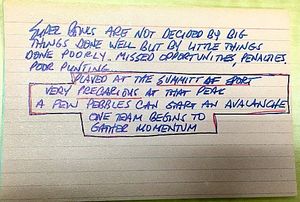 SUPER BOWLS ARE NOT DECIDED BY BIG
THINGS DONE WELL BUT BY LITTLE THINGS
DONE POORLY. MISSED OPPORTUNITIES, PENALTIES
POOR PUNTING.
PLAYED AT THE SUMMITT OF SPORT
VERY PRECARIOUS AT THAT PEAK
A FEW PEBBLES CAN START AN AVALANCHE
ONE TEAM BEGINS TO
GATHER MOMENTUM